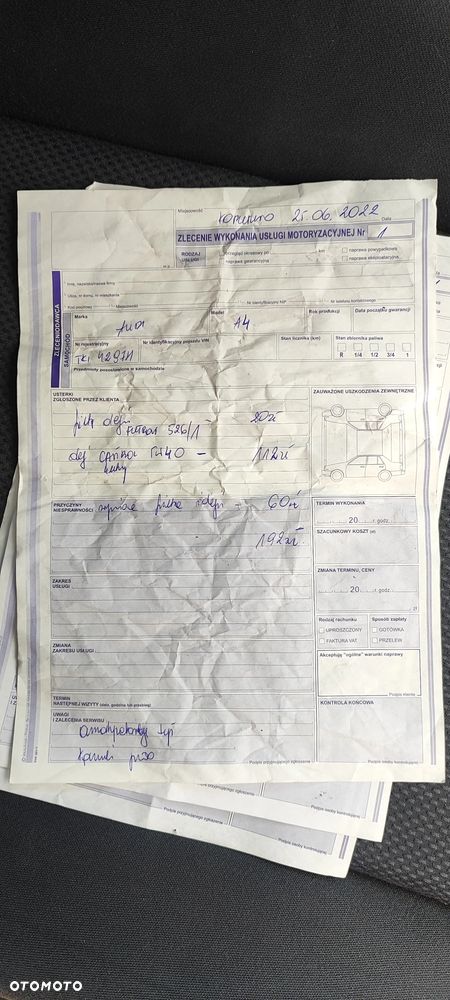 Miejscowość 25.06.2022 Data
ZLECENIE WYKONANIA USŁUGI MOTORYZACYJNEJ Nr 1
RODZAJ USŁUGI
przegląd okresowy po km
naprawa powypadkowa
naprawa gwarancyjna
naprawa eksploatacyjna
ZLECENIODAWCA
Imię, nazwisko/nazwa firmy
Ulica, nr domu, nr mieszkania
Kod pocztowy Miejscowość Nr identyfikacyjny NIP Nr telefonu kontaktowego
SAMOCHÓD
Marka Audi Model A4 Rok produkcji Data początku gwarancji
Nr rejestracyjny Nr identyfikacyjny pojazdu VIN Stan licznika (km) Stan zbiornika paliwa
R 1/4 1/2 3/4 1
Przedmioty pozostawione w samochodzie
USTERKI ZGŁOSZONE PRZEZ KLIENTA
ZAUWAŻONE USZKODZENIA ZEWNĘTRZNE
526/1 20zł
112zł
PRZYCZYNY NIESPRAWNOŚCI
60zł
192zł
TERMIN WYKONANIA
20 r godz.
SZACUNKOWY KOSZT (zł)
ZMIANA TERMINU, CENY
20 r godz.
ZAKRES USŁUGI
Rodzaj rachunku Sposób zapłaty
UPROSZCZONY GOTÓWKA
FAKTURA VAT PRZELEW
ZMIANA ZAKRESU USŁUGI
Akceptuję "ogólne" warunki naprawy
Podpis klienta
TERMIN NASTĘPNEJ WIZYTY (data, godzina lub przebieg)
KONTROLA KOŃCOWA
UWAGI I ZALECENIA SERWISU
Podpis przyjmującego zgłoszenie Podpis osoby kontrolującej
Podpis przyjmującego zgłoszenie Podpis osoby kontrolującej
Podpis przyjmującego zgłoszenie Podpis osoby kontrolującej
OTOMOTO